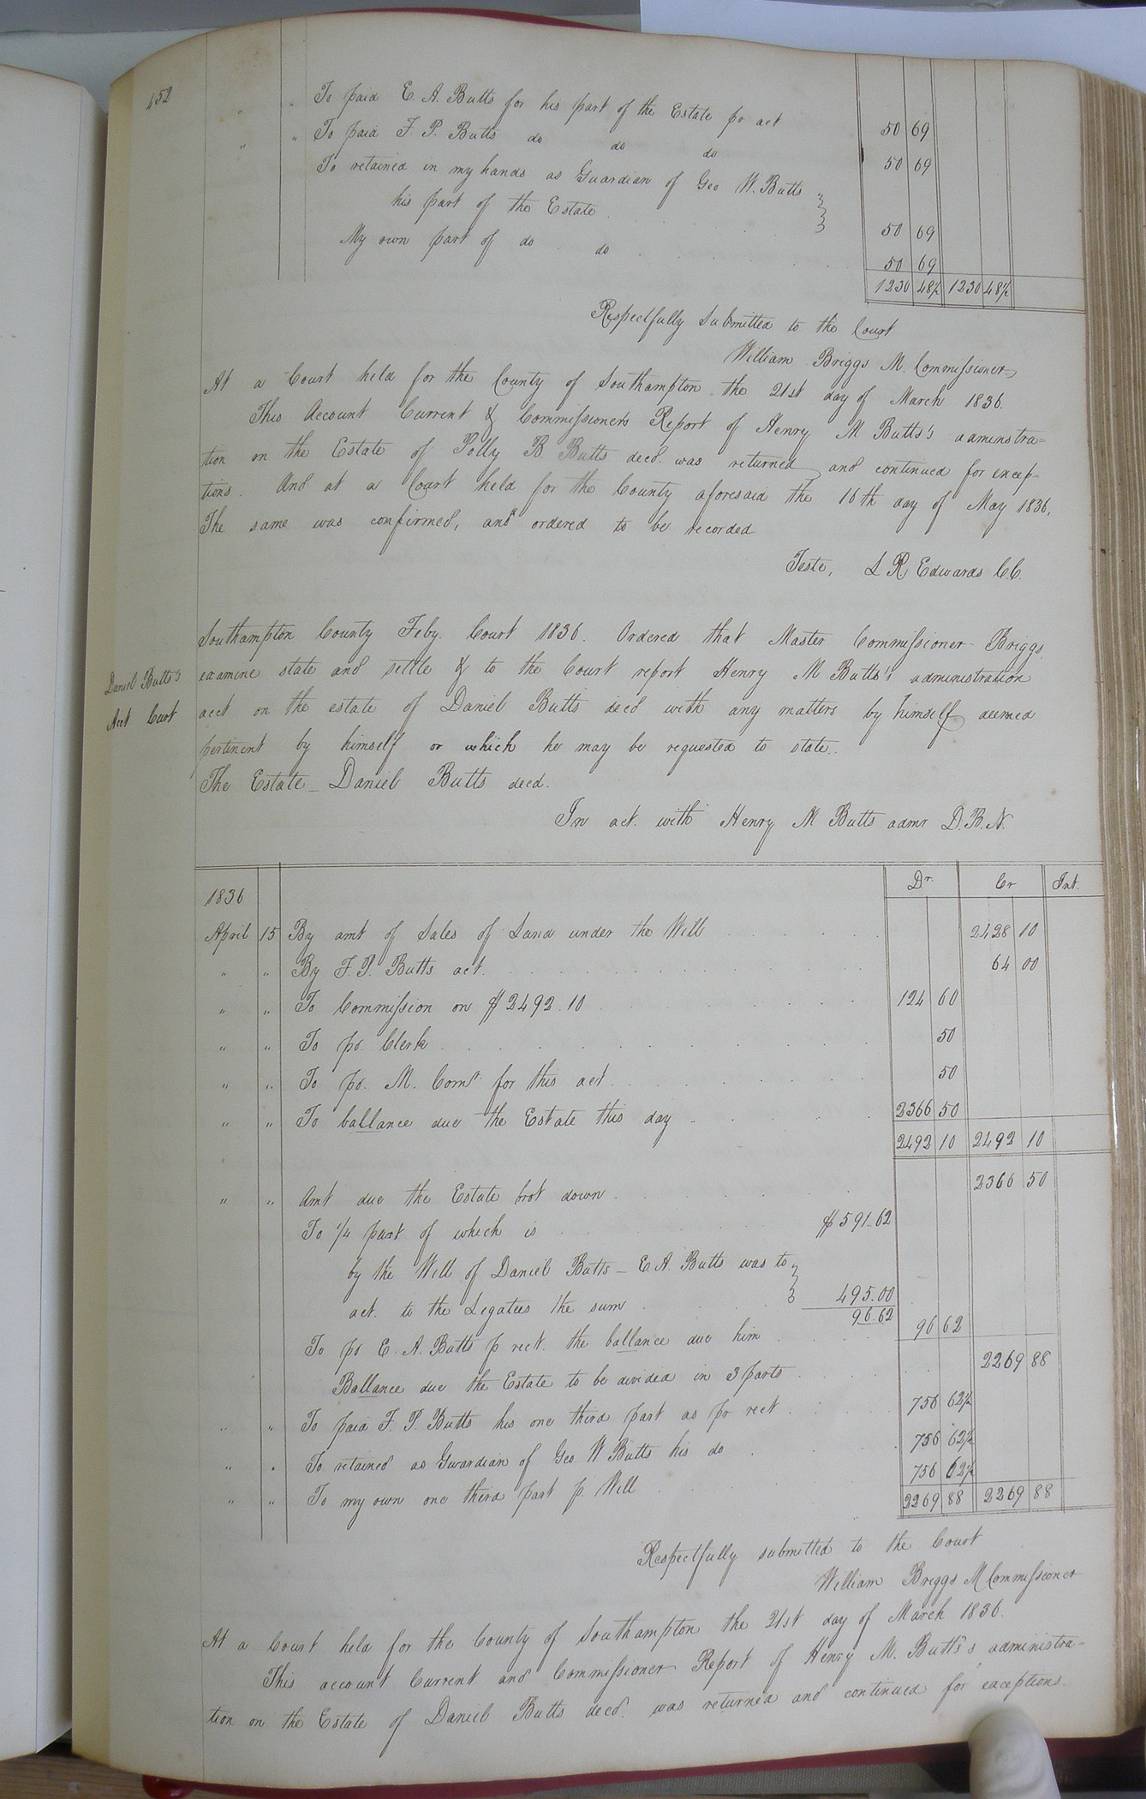 452
" To paid E. A. Butts for his part of the Estate pr act 50 69
" " To paid F. P. Butts do do do 50 69
To retained in my hands as Guardian of Geo W. Butts
his part of the Estate 50 69
My own part of do do 50 69
1230 48½ 1230 48½
Respectfully Submitted to the Court
William Briggs M. Commissioner
At a Court held for the County of Southampton the 21st day of March 1836.
This Account Current & Commissioners Report of Henry M Butts's adminstra=
tion on the Estate of Polly B Butts decd. was returned and continued for excep-
tions. And at a Court held for the County aforesaid the 16th day of May 1836,
The same was confirmed, and ordered to be recorded
Teste, L R Edwards C.C.
Southampton County Feby. Court 1836. Ordered that Master Commissioner Briggs
examine state and settle & to the Court report Henry M Butts's administration
Daniel Butts's
Act Curt
acct on the estate of Daniel Butts decd with any matters by himself deemed
pertinent by himself or which he may be requested to state.
The Estate Daniel Butts decd.
In act. with Henry M Butts admr D.B.N.
Dr. Cr Int.
1836
April 15 By amt of Sales of Land under the Will 2428 10
" " By F. P. Butts act. 64 00
" " To Commission on $2492.10 124 60
" " To pd. Clerk 50
" " To pd. M. Comr. for this act 50
" " To ballance due the Estate this day 2366 50
2492 10 2492 10
" " Amt due the Estate brot down 2366 50
To ¼ part of which is $591.62
by the Will of Daniel Butts – E. A. Butts was to
act. to the Legatees the sum 495.00
96.62
To pd E. A. Butts p rect. the ballance due him 96 62
Ballance due the Estate to be divided in 3 parts 2269 88
" " To paid F. P. Butts his one third part as pr rect 756 62½
" " To retained as Guardian of Geo W Butts his do 756 62½
" " To my own one third part p. Will 756 62½
2269 88 2269 88
Respectfully submitted to the Court
William Briggs M Commissioner
At a Court held for the County of Southampton the 21st day of March 1836.
This account Current and Commissioner Report of Henry M. Butts's administra-
tion on the Estate of Daniel Butts decd. was returned and continued for exceptions.